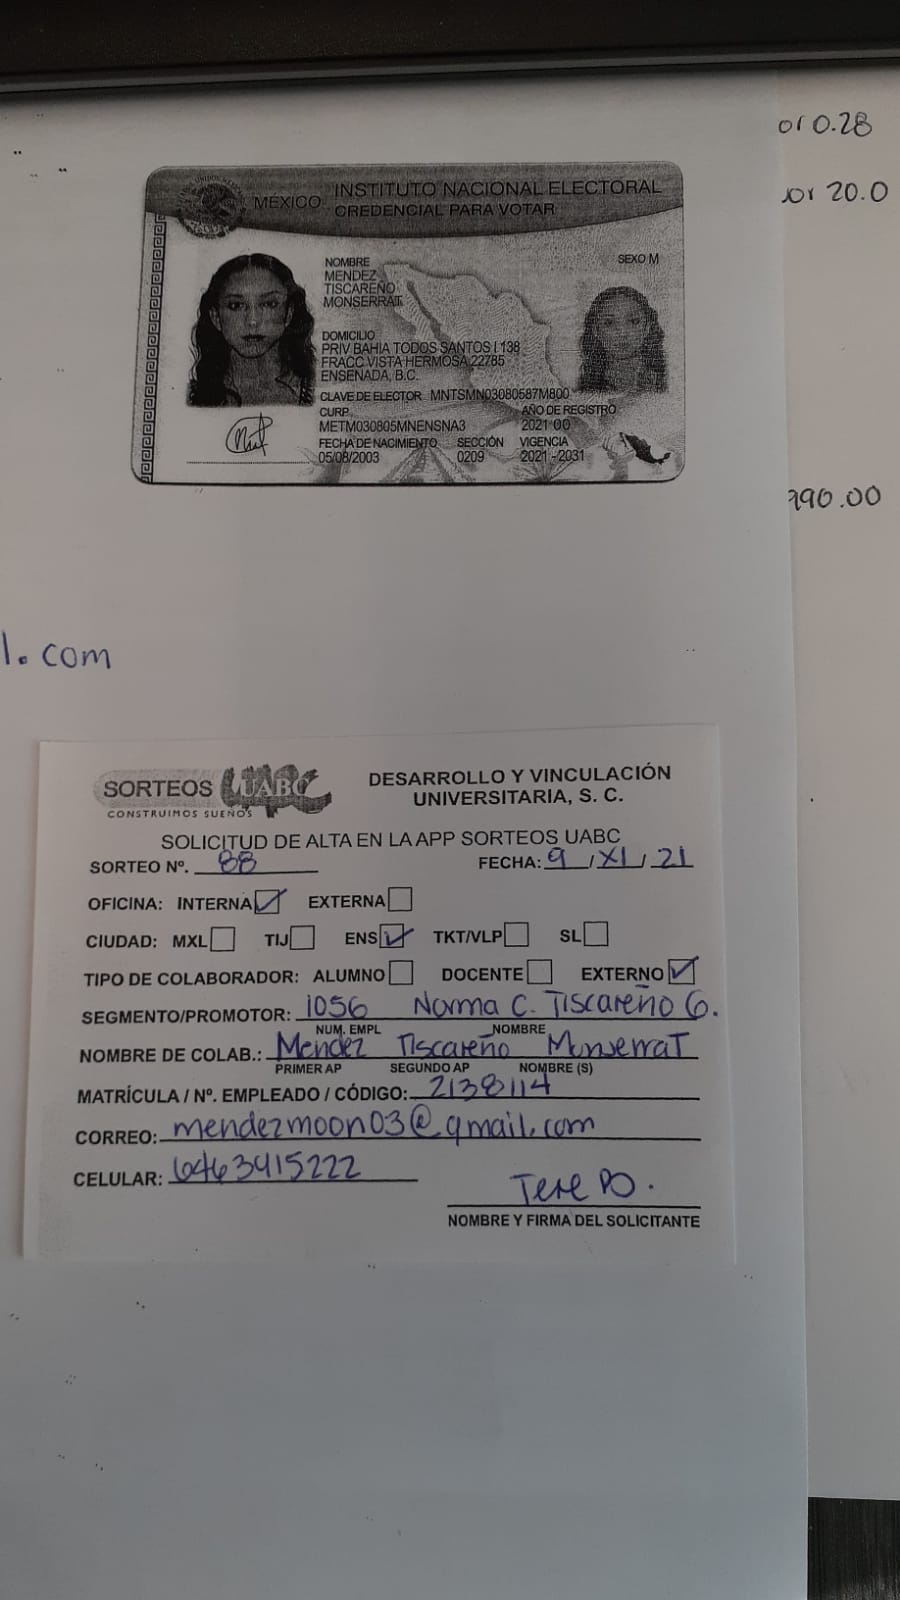 or 0.28
or 20.0
MÉXICO INSTITUTO NACIONAL ELECTORAL
CREDENCIAL PARA VOTAR
NOMBRE
SEXO M
MENDEZ
TISCAREÑO
MONSERRAT
DOMICILIO
PRIV BAHIA TODOS SANTOS L 138
FRACC VISTA HERMOSA 22785
ENSENADA, B.C.
CLAVE DE ELECTOR MNTSMN03080587M800
CURP AÑO DE REGISTRO
METM030805MNENSNA3 2021 00
FECHA DE NACIMIENTO SECCIÓN VIGENCIA
05/08/2003 0209 2021 - 2031
990.00
l. com
SORTEOS UABC
CONSTRUIMOS SUEÑOS
DESARROLLO Y VINCULACIÓN
UNIVERSITARIA, S. C.
SOLICITUD DE ALTA EN LA APP SORTEOS UABC
SORTEO Nº. 88 FECHA: 9 / XI / 21
OFICINA: INTERNA EXTERNA
CIUDAD: MXL TIJ ENS TKT/VLP SL
TIPO DE COLABORADOR: ALUMNO DOCENTE EXTERNO
SEGMENTO/PROMOTOR: 1056 Norma C. Tiscareño G.
NUM. EMPL NOMBRE
NOMBRE DE COLAB.: Mendez Tiscareño Monserrat
PRIMER AP SEGUNDO AP NOMBRE (S)
MATRÍCULA / Nº. EMPLEADO / CÓDIGO: 2138114
CORREO: mendezmoon03@gmail.com
CELULAR: 6463415222
Tere PO.
NOMBRE Y FIRMA DEL SOLICITANTE